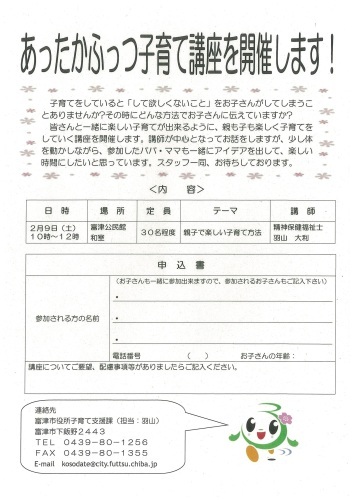 あったかふっつ子育て講座を開催します！
子育てをしていると「して欲しくないこと」をお子さんがしてしまうこ
とありませんか?その時にどんな方法でお子さんに伝えていますか?
皆さんと一緒に楽しい子育てが出来るように、親も子も楽しく子育てを
していく講座を開催します。講師が中心となってお話をしますが、少し体
を動かしながら、参加したパパ・ママも一緒にアイデアを出して、楽しい
時間にしたいと思っています。スタッフ一同、お待ちしております。
＜内　容＞
日　時　場　所　定　員　テーマ　講　師
２月９日（土）　富津公民館　３０名程度　親子で楽しい子育て方法　精神保健福祉士
１０時～１２時　和室　羽山　大利
申　込　書
（お子さんも一緒に参加出来ますので、参加されるお子さんもご記入下さい）
参加される方の名前
・
・
・
電話番号　（　）　お子さんの年齢：
講座についてご要望、配慮事項等がありましたらご記入ください。
連絡先
富津市役所子育て支援課（担当：羽山）
富津市下飯野２４４３
ＴＥＬ　０４３９－８０－１２５６
ＦＡＸ　０４３９－８０－１３５５
E-mail　kosodate@city.futtsu.chiba.jp